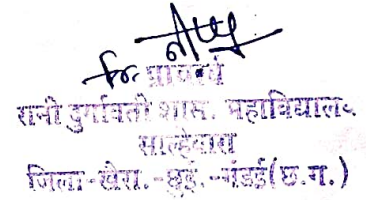 For
प्राचार्य
रानी दुर्गावती शास. महाविद्यालय
साल्हेवारा
जिला-खैरा.-छुई.-गंडई(छ.ग.)